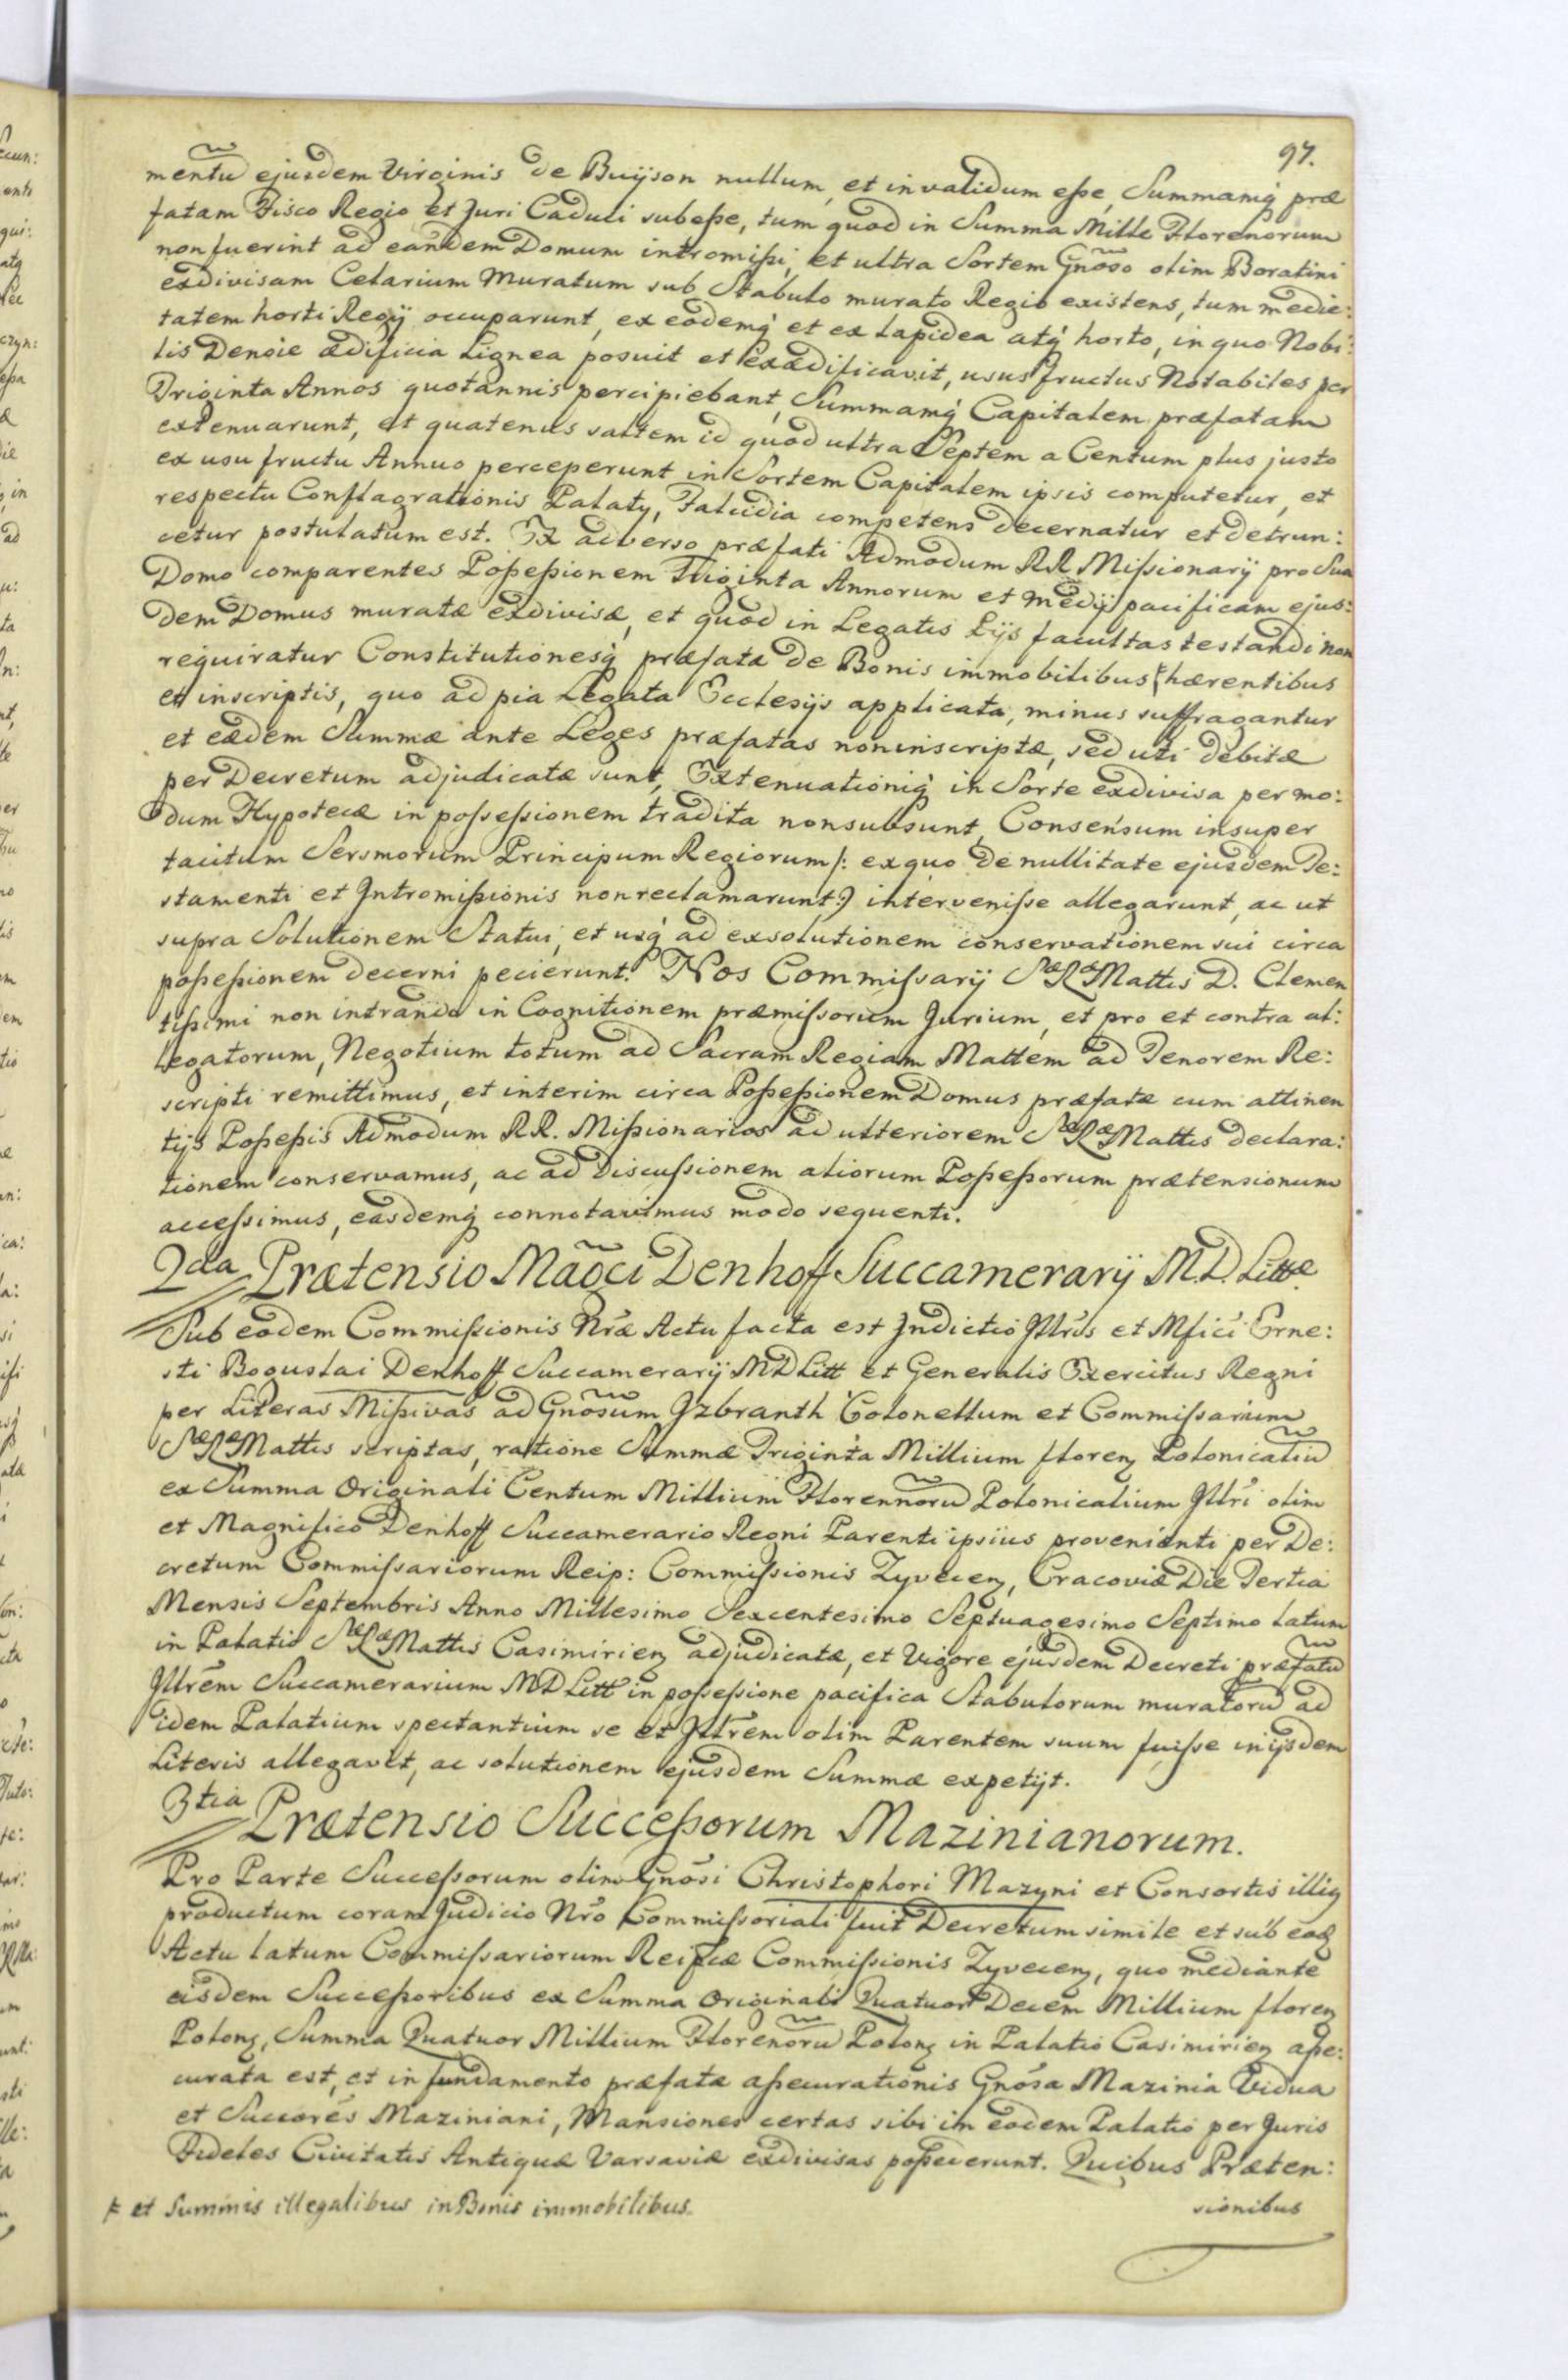 97.
mentũ ejusdem Virginis de Buÿson nullum, et invalidum eſse, Summamq́ præ
fatam Fisco Regio et Juri Caduci subeſse, tum quod in Summa Mille Florenorum
non fuerint ad eandem Domum intromiſsi, et ultra Sortem Gnõso olim Boratini
exdivisam Celarium Muratum sub Stabulo murato Regio existens, tum medie:
tatem horti Regÿ occuparunt, ex eodemq́ et ex lapidea atq́ horto, in quo Nobi:
lis Densie ædificia Lignea posuit et exædificavit, usus fructus Notabiles per
Triginta Annos quotannis percipiebant, Summamq́ Capitalem præfatam
extenuarunt, et quatenus saltem id quod ultra Septem a Centum plus justo
ex usu fructu Annuo perceperunt in Sortem Capitalem ipsis computetur, et
respectu Conflagrationis Palaty, Falcidia competens decernatur et detrun:
cetur postulatum est. Ex adverso præfati Admodum RR Miſsionarÿ pro Sua
Domo comparentes Poſseſsionem Triginta Annorum et medÿ pacificam ejus:
dem Domus muratæ exdivisæ, et quod in Legatis Pÿs facultas testandi non
requiratur Constitutionesq́ præfatæ de Bonis immobilibus ⁊ hærentibus
et inscriptis, quo ad pia Legata Ecclesÿs applicata, minus suffragantur
et eædem Summæ ante Leges præfatas non inscriptæ, sed uti debitæ
per Decretum adjudicatæ sunt, Extenuationiq́ in Sorte exdivisa per mo:
dum Hypotecæ in poſseſsionem tradita non subsunt, Consensum insuper
tacitum Sersmorum Principum Regiorum /: ex quo de nullitate ejusdem Te:
stamenti et Intromiſsionis non reclamarunt :) interveniſse allegarunt, ac ut
supra Solutionem Statui, et usq́ ad exsolutionem conservationem sui circa
poſseſsionem decerni pecierunt. Nos Commiſsarÿ SæRæ Mattis D. Clemen
tiſsimi non intrando in Cognitionem præmiſsorum Jurium, et pro et contra al:
legatorum, Negotium totum ad Sacram Regiam Mattem ad Tenorem Re:
scripti remittimus, et interim circa Poſseſsionem Domus præfatæ cum attinen
tÿs Poſseſsis Admodum RR. Miſsionarios ad ulteriorem SæRæ Mattis declara:
tionem conservamus, ac ad discuſsionem aliorum Poſseſsorum prætensionum
acceſsimus, easdemq́ connotavimus modo sequenti.
2da Prætensio Magci Denhoff Succamerarÿ M.D. Littæ.
Sub eodem Commiſsionis Nræ Actu facta est Indictio Illris et Mfici Erne:
sti Boguslai Denhoff Succamerarÿ MDLitt et Generalis Exercitus Regni
per Literas Miſsivas ad Gnõsum Jzbranth Colonellum et Commiſsarium
SæRæ Mattis scriptas, ratione Summæ Triginta Millium floren Polonicaliũ
ex Summa Originali Centum Millium Florennorũ Polonicalium Illri olim
et Magnifico Denhoff Succamerario Regni Parenti ipsius provenienti per De:
cretum Commiſsariorum Reip: Commiſsionis Zyvecen, Cracoviæ Die Tertia
Mensis Septembris Anno Millesimo Sexcentesimo Septuagesimo Septimo latum
in Palatio SæRæ Mattis Casimirien adjudicatæ, et Vigore ejusdem Decreti præfatũ
Illrem Succamerarium MDLitt in poſseſsione pacifica Stabulorum muratorũ ad
idem Palatium spectantium se et Illrem olim Parentem suum fuiſse in ijsdem
Literis allegavit, ac solutionem ejusdem Summæ expetÿt.
3tia Prætensio Succeſsorum Mazinianorum.
Pro Parte Succeſsorum olim Gnõsi Christophori Mazyni et Consortis illiq
productum coram Judicio Nro Commiſsoriali fuit Decretum simile et sub eod
Actu latum Commiſsariorum Reipcæ Commiſsionis Zyvecen, quo mediante
eisdem Succeſsoribus ex Summa Originali Quatuor Decem Millium floren
Polon, Summa Quatuor Millium Florenorũ Polon in Palatio Casimirien aſse:
curata est, et in fundamento præfatæ aſsecurationis Gnõsa Mazinia Vidua
et Succores Maziniani, Mansiones certas sibi in eodem Palatio per Juris
Fideles Civitatis Antiquæ Varsaviæ exdivisas poſsederunt. Quibus Præten:
⁊ et Summis illegalibus in Bonis immobilibus.
sionibus